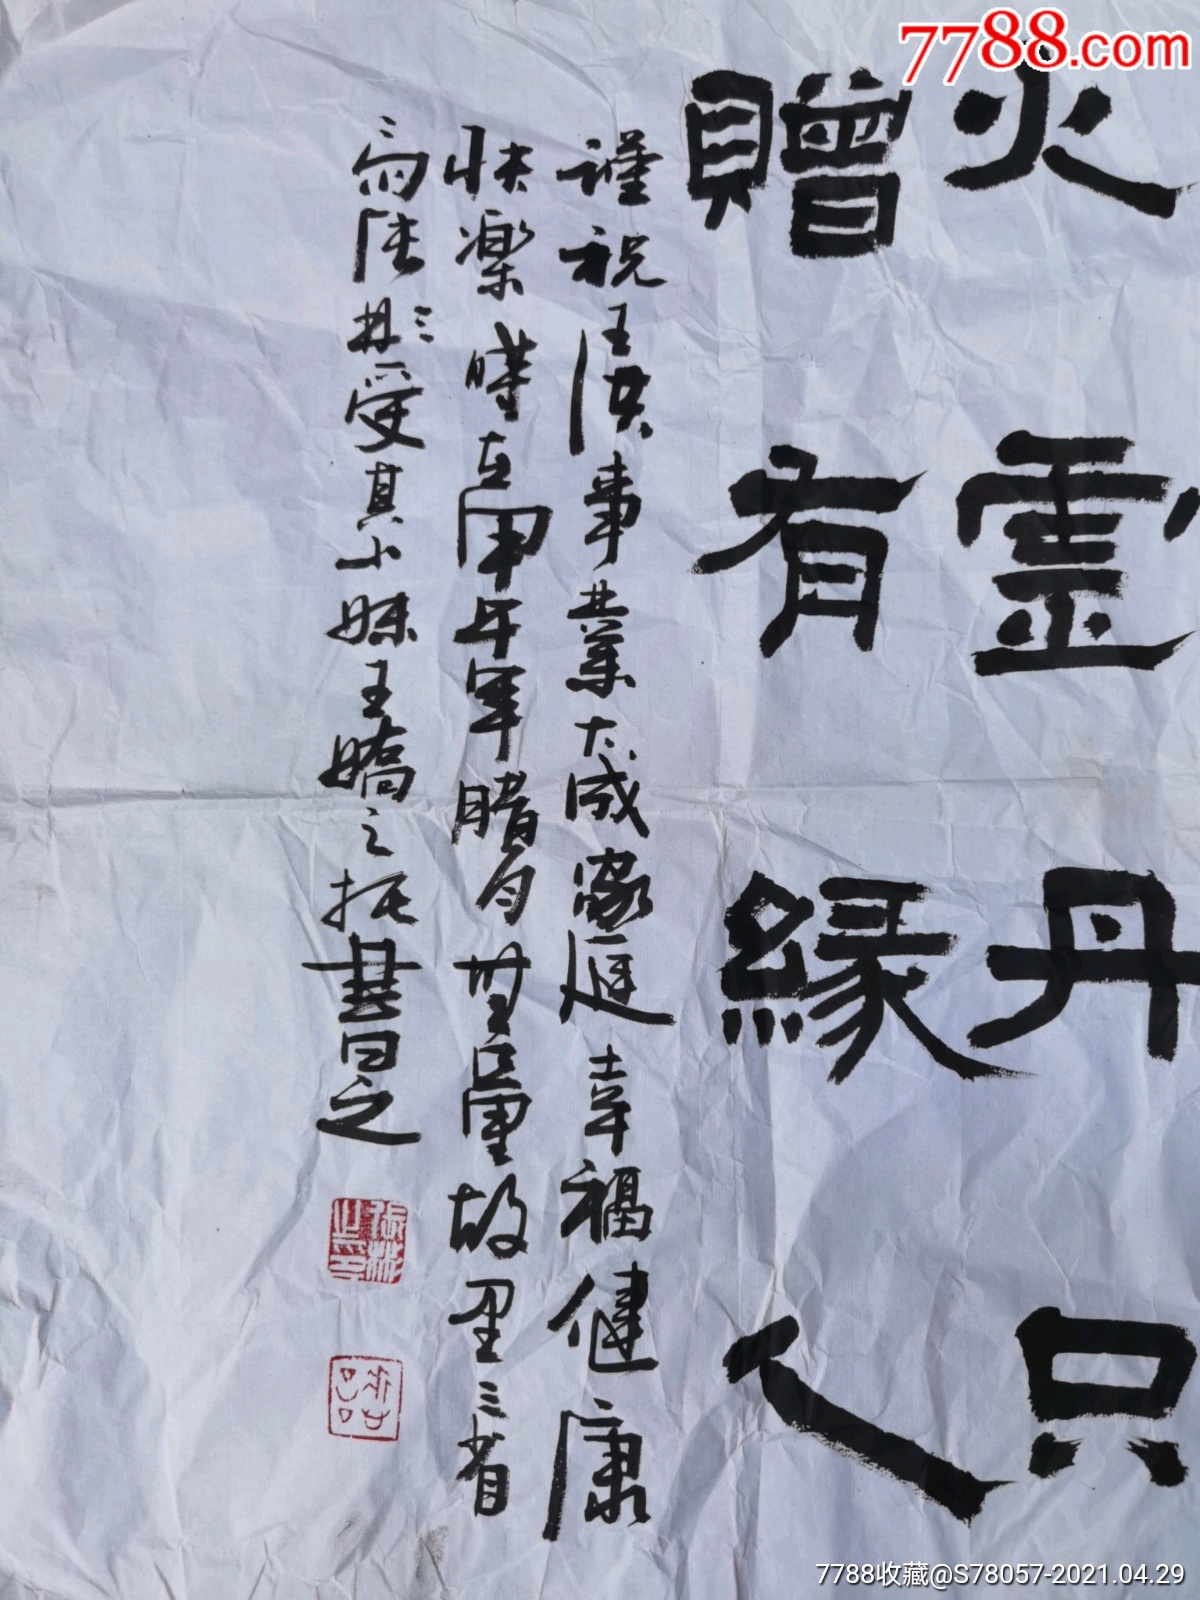 7788.com
火靈丹只
贈有緣人
謹祝王洪事業大成家庭幸福健康
快樂時在甲午年腊月無量故里三省
雨陸林受其小妹王嬌之托書之
7788收藏@S78057-2021.04.29